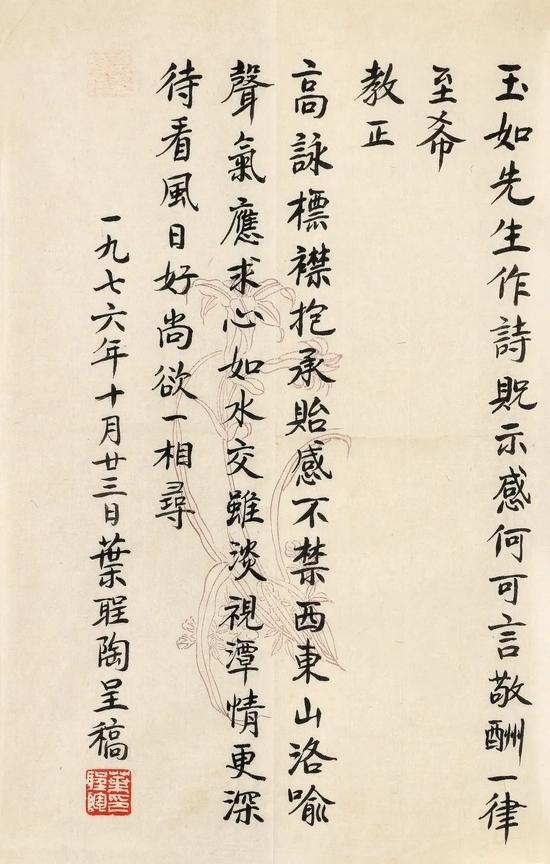 玉如先生作詩貺示感何可言敬酬一律
至希
教正
高詠標襟抱承貽感不禁西東山洛喻
聲氣應求心如水交雖淡視潭情更深
待看風日好尚欲一相尋
一九七六年十月廿三日葉聖陶呈稿